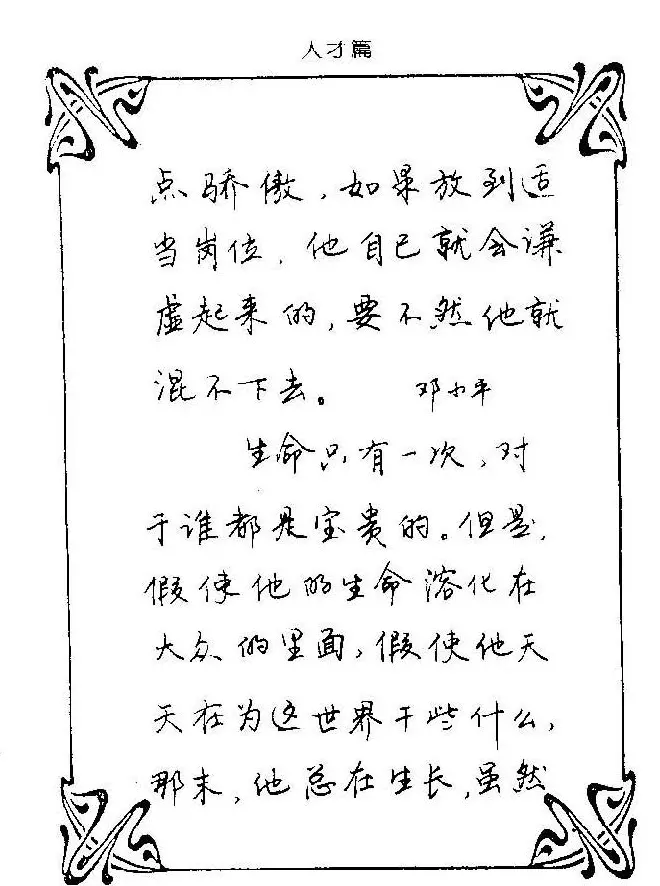 人才篇
点骄傲，如果放到适
当岗位，他自己就会谦
虚起来的，要不然他就
混不下去。 邓小平
生命只有一次，对
于谁都是宝贵的。但是，
假使他的生命溶化在
大众的里面，假使他天
天在为这世界干些什么，
那末，他总在生长，虽然